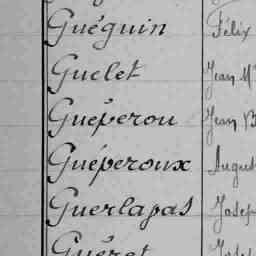 Guéguin Félix
Guelet Jean M
Guéperou Jean B
Guéperoux August
Guerlagas Josep
Guéret Josep